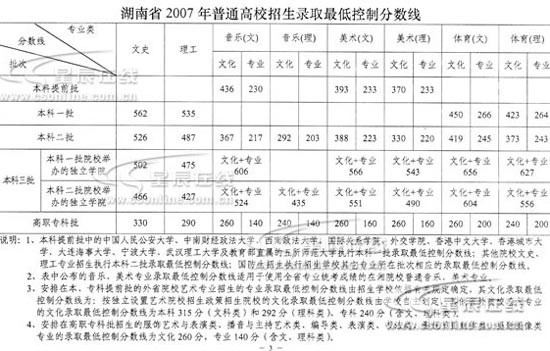 湖南省2007年普通高校招生录取最低控制分数线
专业类 分数线 批次 文史 理工 音乐(文) 音乐(理) 美术(文) 美术(理) 体育(文) 体育(理)
文化 专业 文化 专业 文化 专业 文化 专业 文化 专业 文化 专业
本科提前批 436 230 393 233 370 233
本科一批 562 535 450 266 423 264
本科二批 526 487 367 217 292 203 388 223 330 220 419 245 373 243
本科三批
本科一批院校举办的独立学院 502 475 文化+专业 606 文化+专业 566 文化+专业 543 文化+专业 656 文化+专业 627
本科二批院校举办的独立学院 466 427 文化+专业 524 文化+专业 435 文化+专业 551 文化+专业 490 文化+专业 604 文化+专业 556
高职专科批 330 290 260 140 240 140 260 160 240 160 260 200 240 200
说明：1、本科提前批中的中国人民公安大学、中南财经政法大学、西南政法大学、国际关系学院、外交学院、香港中文大学、香港城市大
学、大连海事大学、宁波大学、武汉理工大学及教育部直属的五所师范大学执行本科一批录取最低控制分数线；其他院校文史、
理工专业招生执行本科二批录取最低控制分数线；国防生招生执行招生学校其它专业所在批次相应的录取最低控制分数线。
2、表中公布的音乐、美术专业录取最低控制分数线适用于使用全省专业统考成绩的在湘院校普通音乐、美术专业。
3、安排在本、专科提前批的外省院校艺术专业招生的专业录取最低控制分数线由招生学校依据有关规定确定，其文化录取最低控
制分数线为：按独立设置艺术院校招生政策招生院校的文化录取最低控制分数线由
的文化录取最低控制分数线为本科315分（文科）和292分（理科）、专科240分（含文、理科）。
4、安排在高职专科批招生的服饰艺术与表演类、播音与主持艺术类、编导类、表演类、
专业的录取最低控制线：文化260分，专业140分（含文、理科）。
- 3 -
星辰在线
www.csonline.com.cn